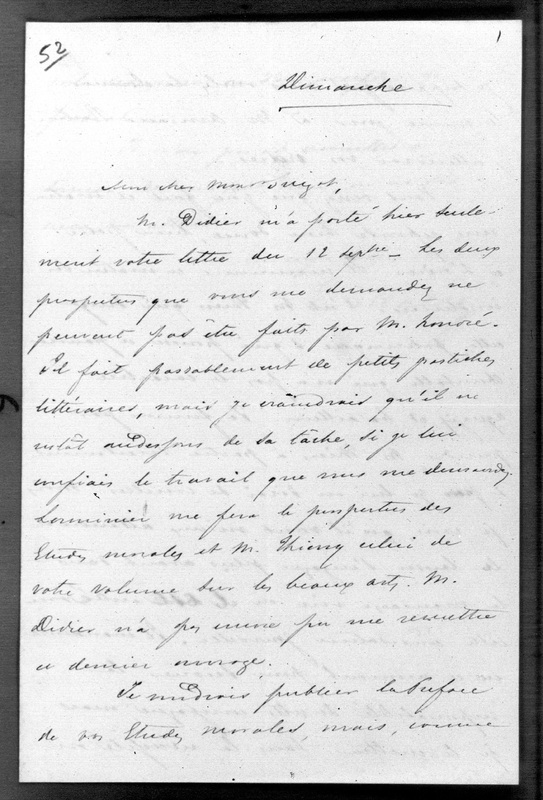 52
1
Dimanche
Mon cher Monsr Guizot,
M. Didier m'a porté hier seule-
ment votre lettre du 12 septbre _ Les deux
prospectus que vous me demandez ne
peuvent pas être faits par M. honoré.
Il fait passablement de petits pastiches
littéraires, mais je craindrais qu'il ne
restât audessous de sa tâche, si je lui
confiais le travail que vous me demandez.
Lerminier me fera le prospectus des
Etudes morales et M. Thierry celui de
votre volume sur les beaux arts. M.
Didier n'a pas encore pu me remettre
ce dernier ouvrage.
Je voudrais publier la Préface
de vos Etudes morales, mais, comme